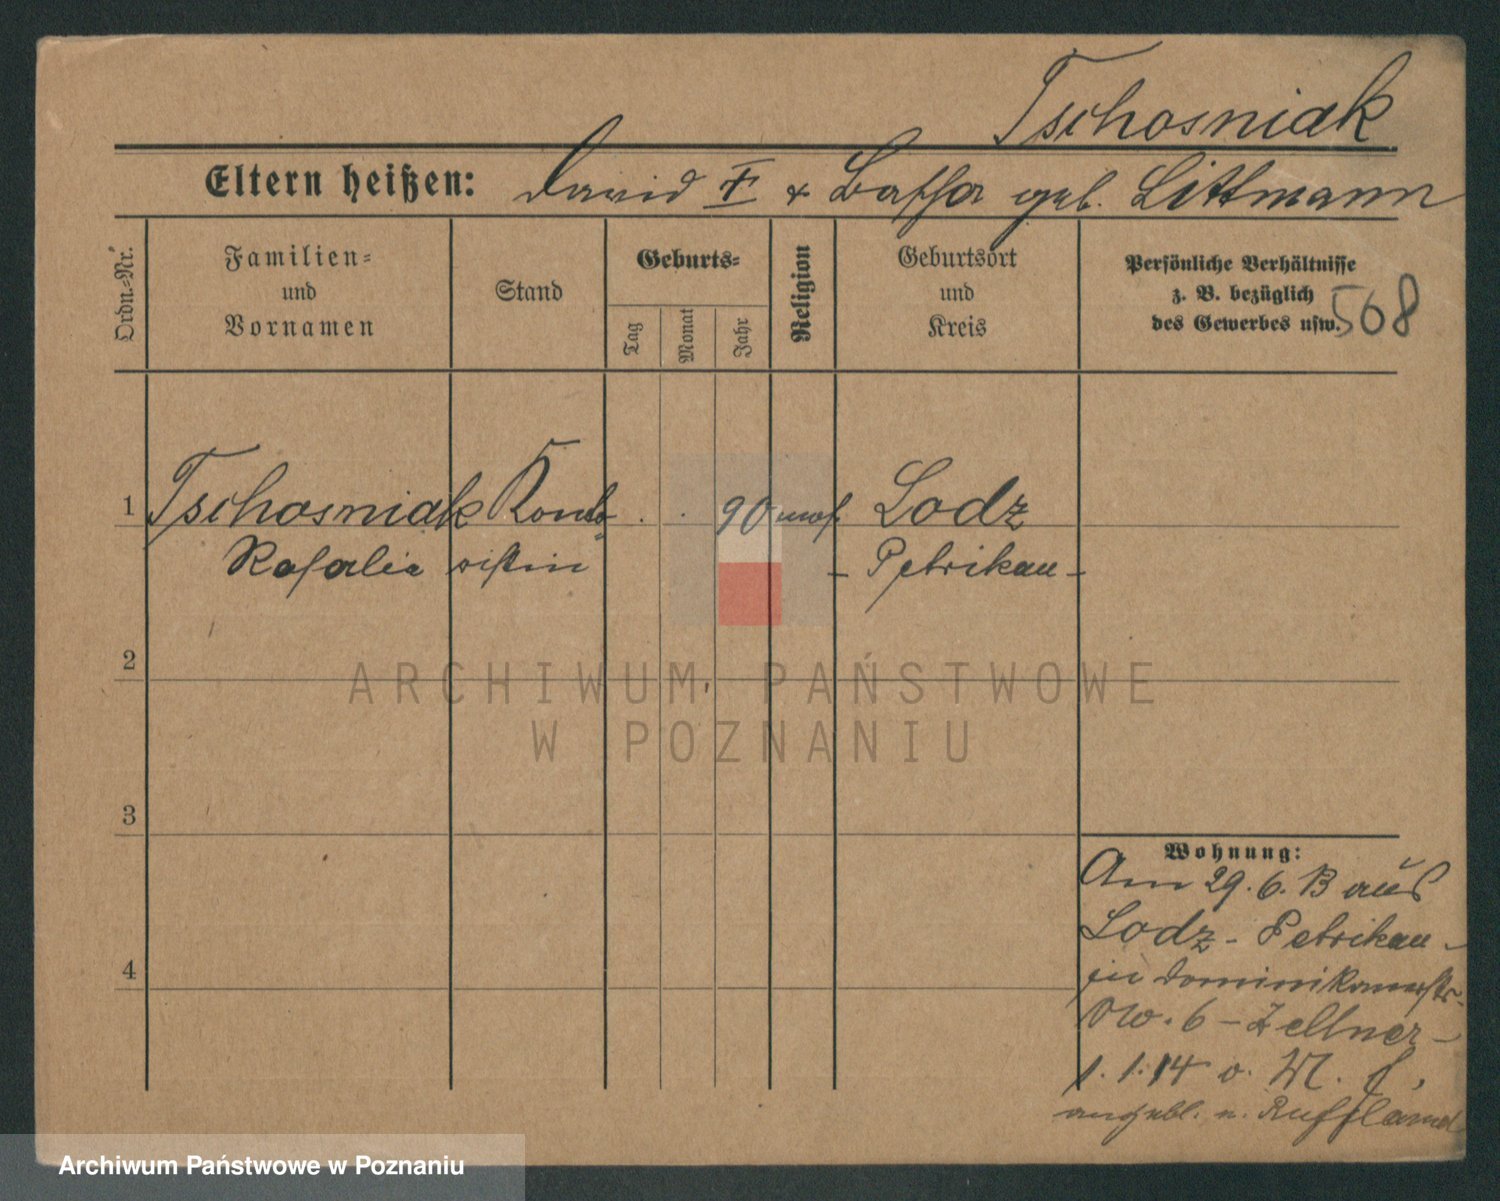 Tschosniak
Eltern heißen: David I † & Bassa geb. Littmann
Ordn.-Nr.
Familien-
und
Vornamen
Stand
Geburts-
Tag
Monat
Jahr
Religion
Geburtsort
und
Kreis
Persönliche Verhältnisse
z. B. bezüglich
des Gewerbes usw.
568
1 Tschosniak Konto- . . 90 mos. Lodz
Rosalie ristin - Petrikau -
2
ARCHIWUM PAŃSTWOWE
W POZNANIU
3
Wohnung:
Am 29. 6. 13 aus
Lodz - Petrikau -
in Dominikanerstr.
No. 6 - Zellner -
4
1. 1. 14 o. M. f,
angebl. n. Russland
Archiwum Państwowe w Poznaniu